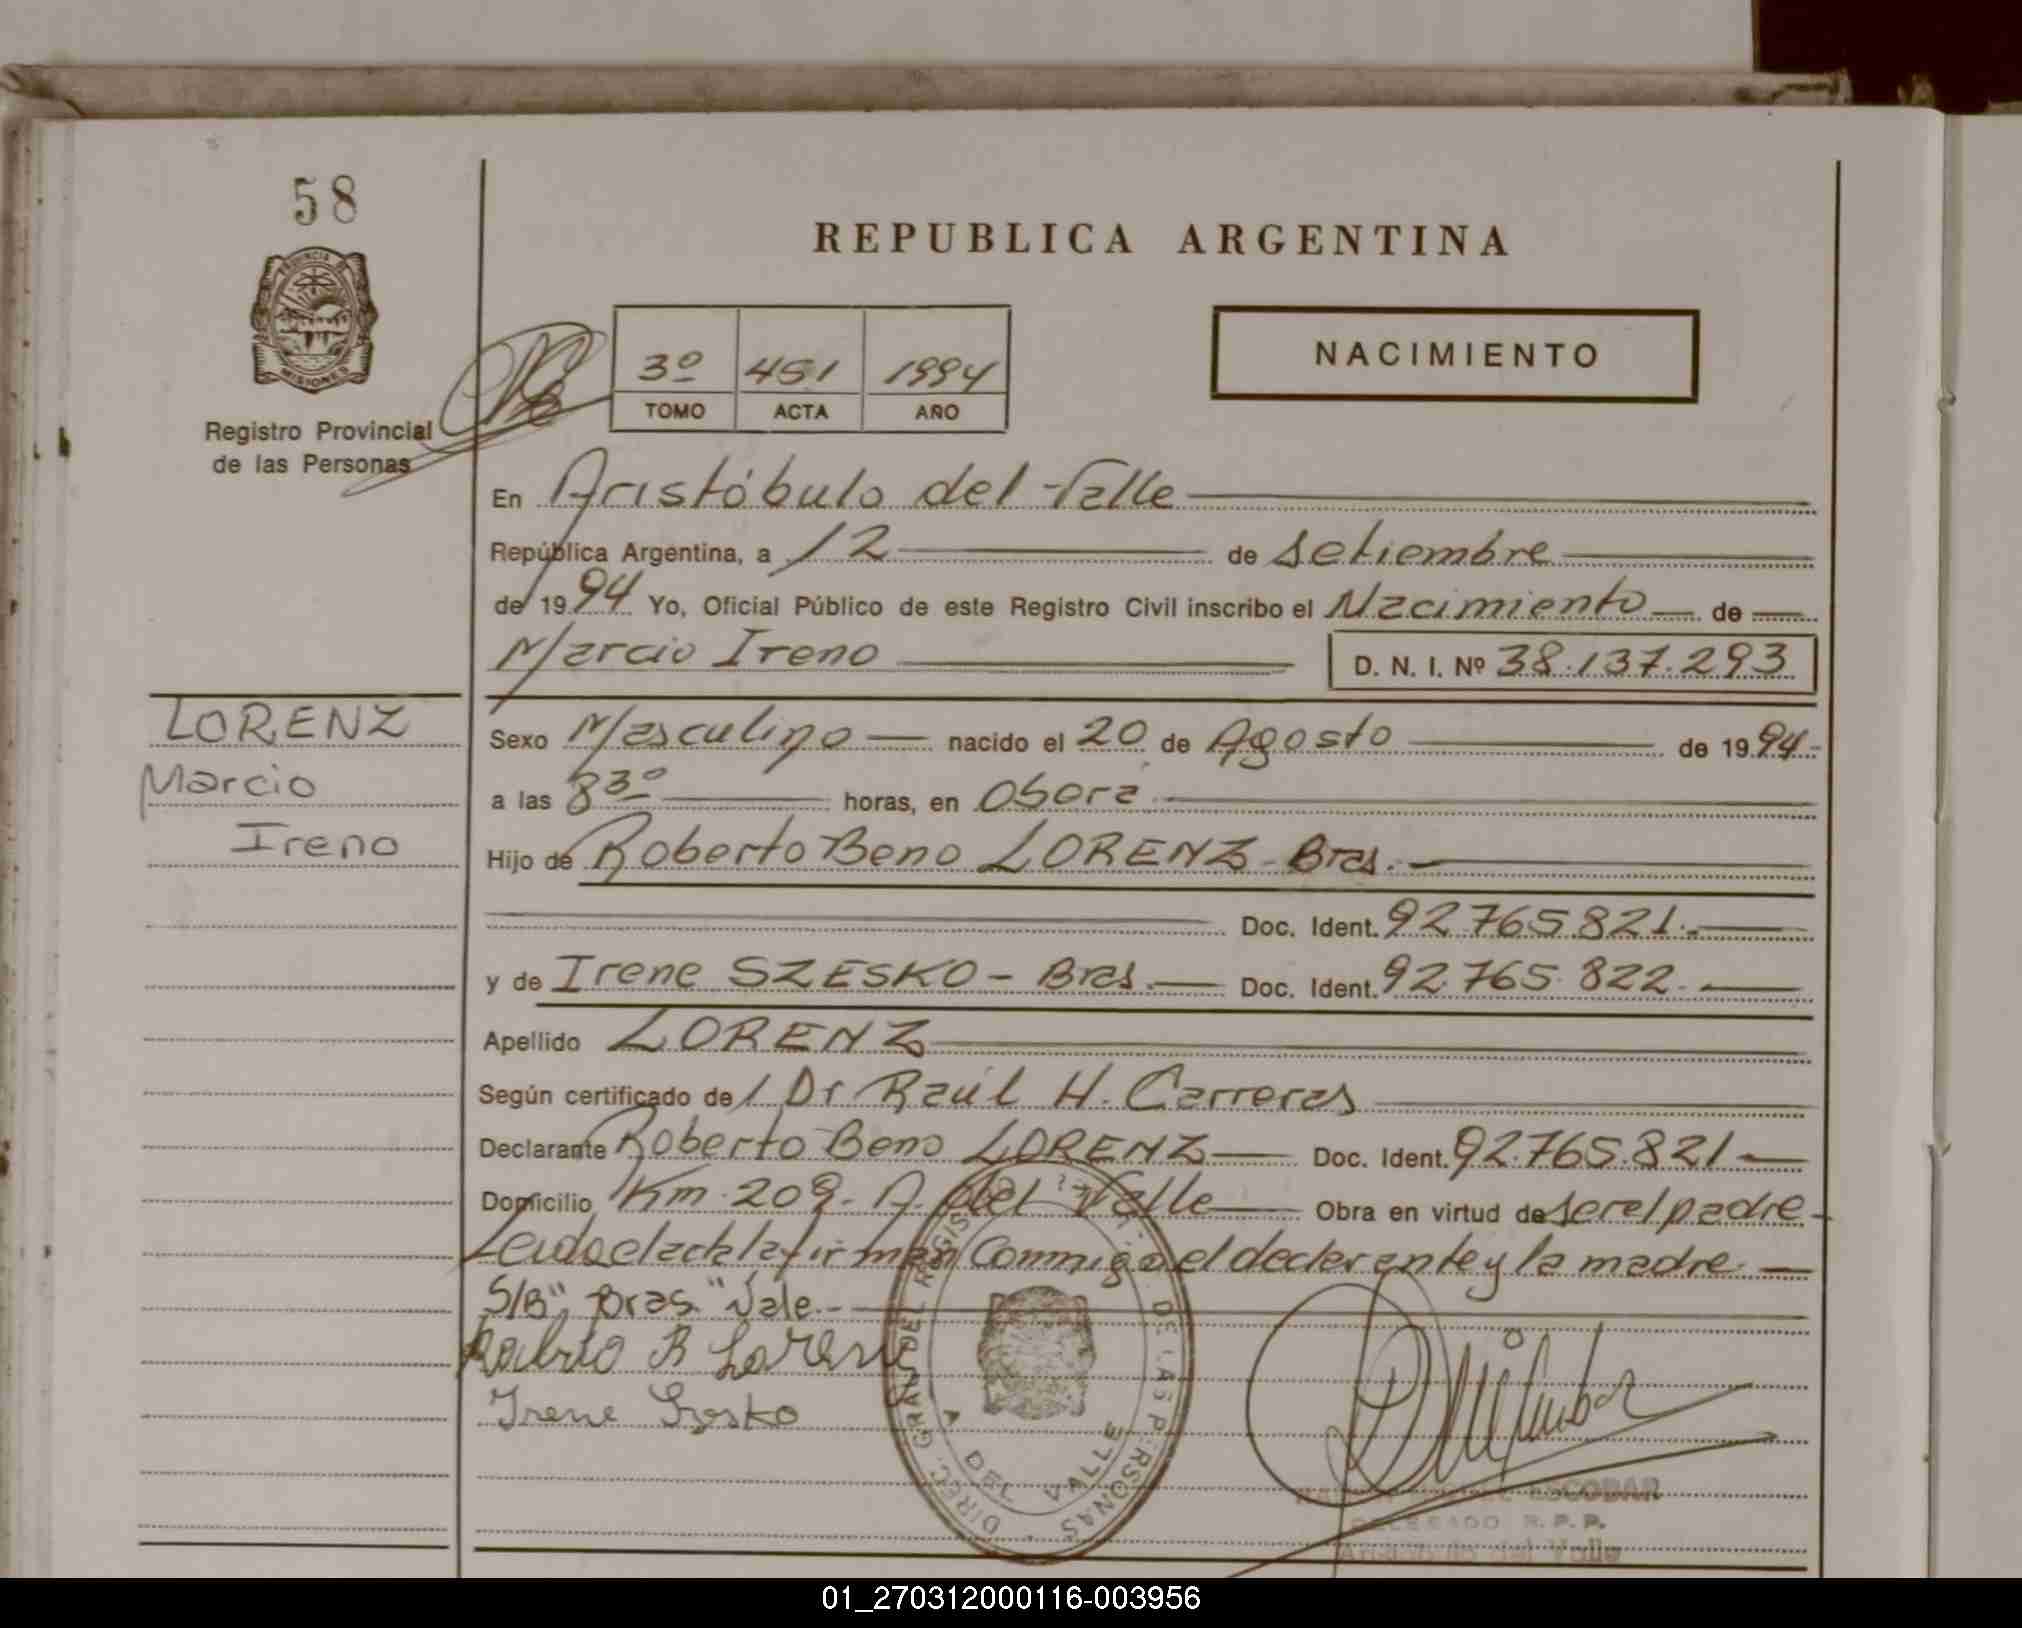 58
REPUBLICA ARGENTINA
PROVINCIA DE
MISIONES
Registro Provincial
de las Personas
3º 451 1994
TOMO ACTA AÑO
NACIMIENTO
En Aristóbulo del Valle
República Argentina, a 12 de setiembre
de 1994 Yo, Oficial Público de este Registro Civil inscribo el Nacimiento de
Marcio Ireno D. N. I. Nº 38.137.293
LORENZ
Marcio
Ireno
Sexo Masculino nacido el 20 de Agosto de 1994
a las 8 30 horas, en Oberá
Hijo de Roberto Beno LORENZ - Bras.
Doc. Ident. 92.765.821.
y de Irene SZESKO - Bras. Doc. Ident. 92.765.822.
Apellido LORENZ
Según certificado de 1 Dr Raúl H. Carreras
Declarante Roberto Beno LORENZ Doc. Ident. 92.765.821
Domicilio Km. 209 - A. del Valle Obra en virtud de ser el padre
Leida el acta la firman Conmigo el declarante y la madre.
S/B", Bras. "Vale.
Roberto B Lorenz
Irene Szesko
DIREC. GRAL. DEL REGIS DE LAS PERSONAS
A DEL VALLE
ESCOBAR
DELEGADO R.P.P.
Aristobulo del Valle
01_270312000116-003956